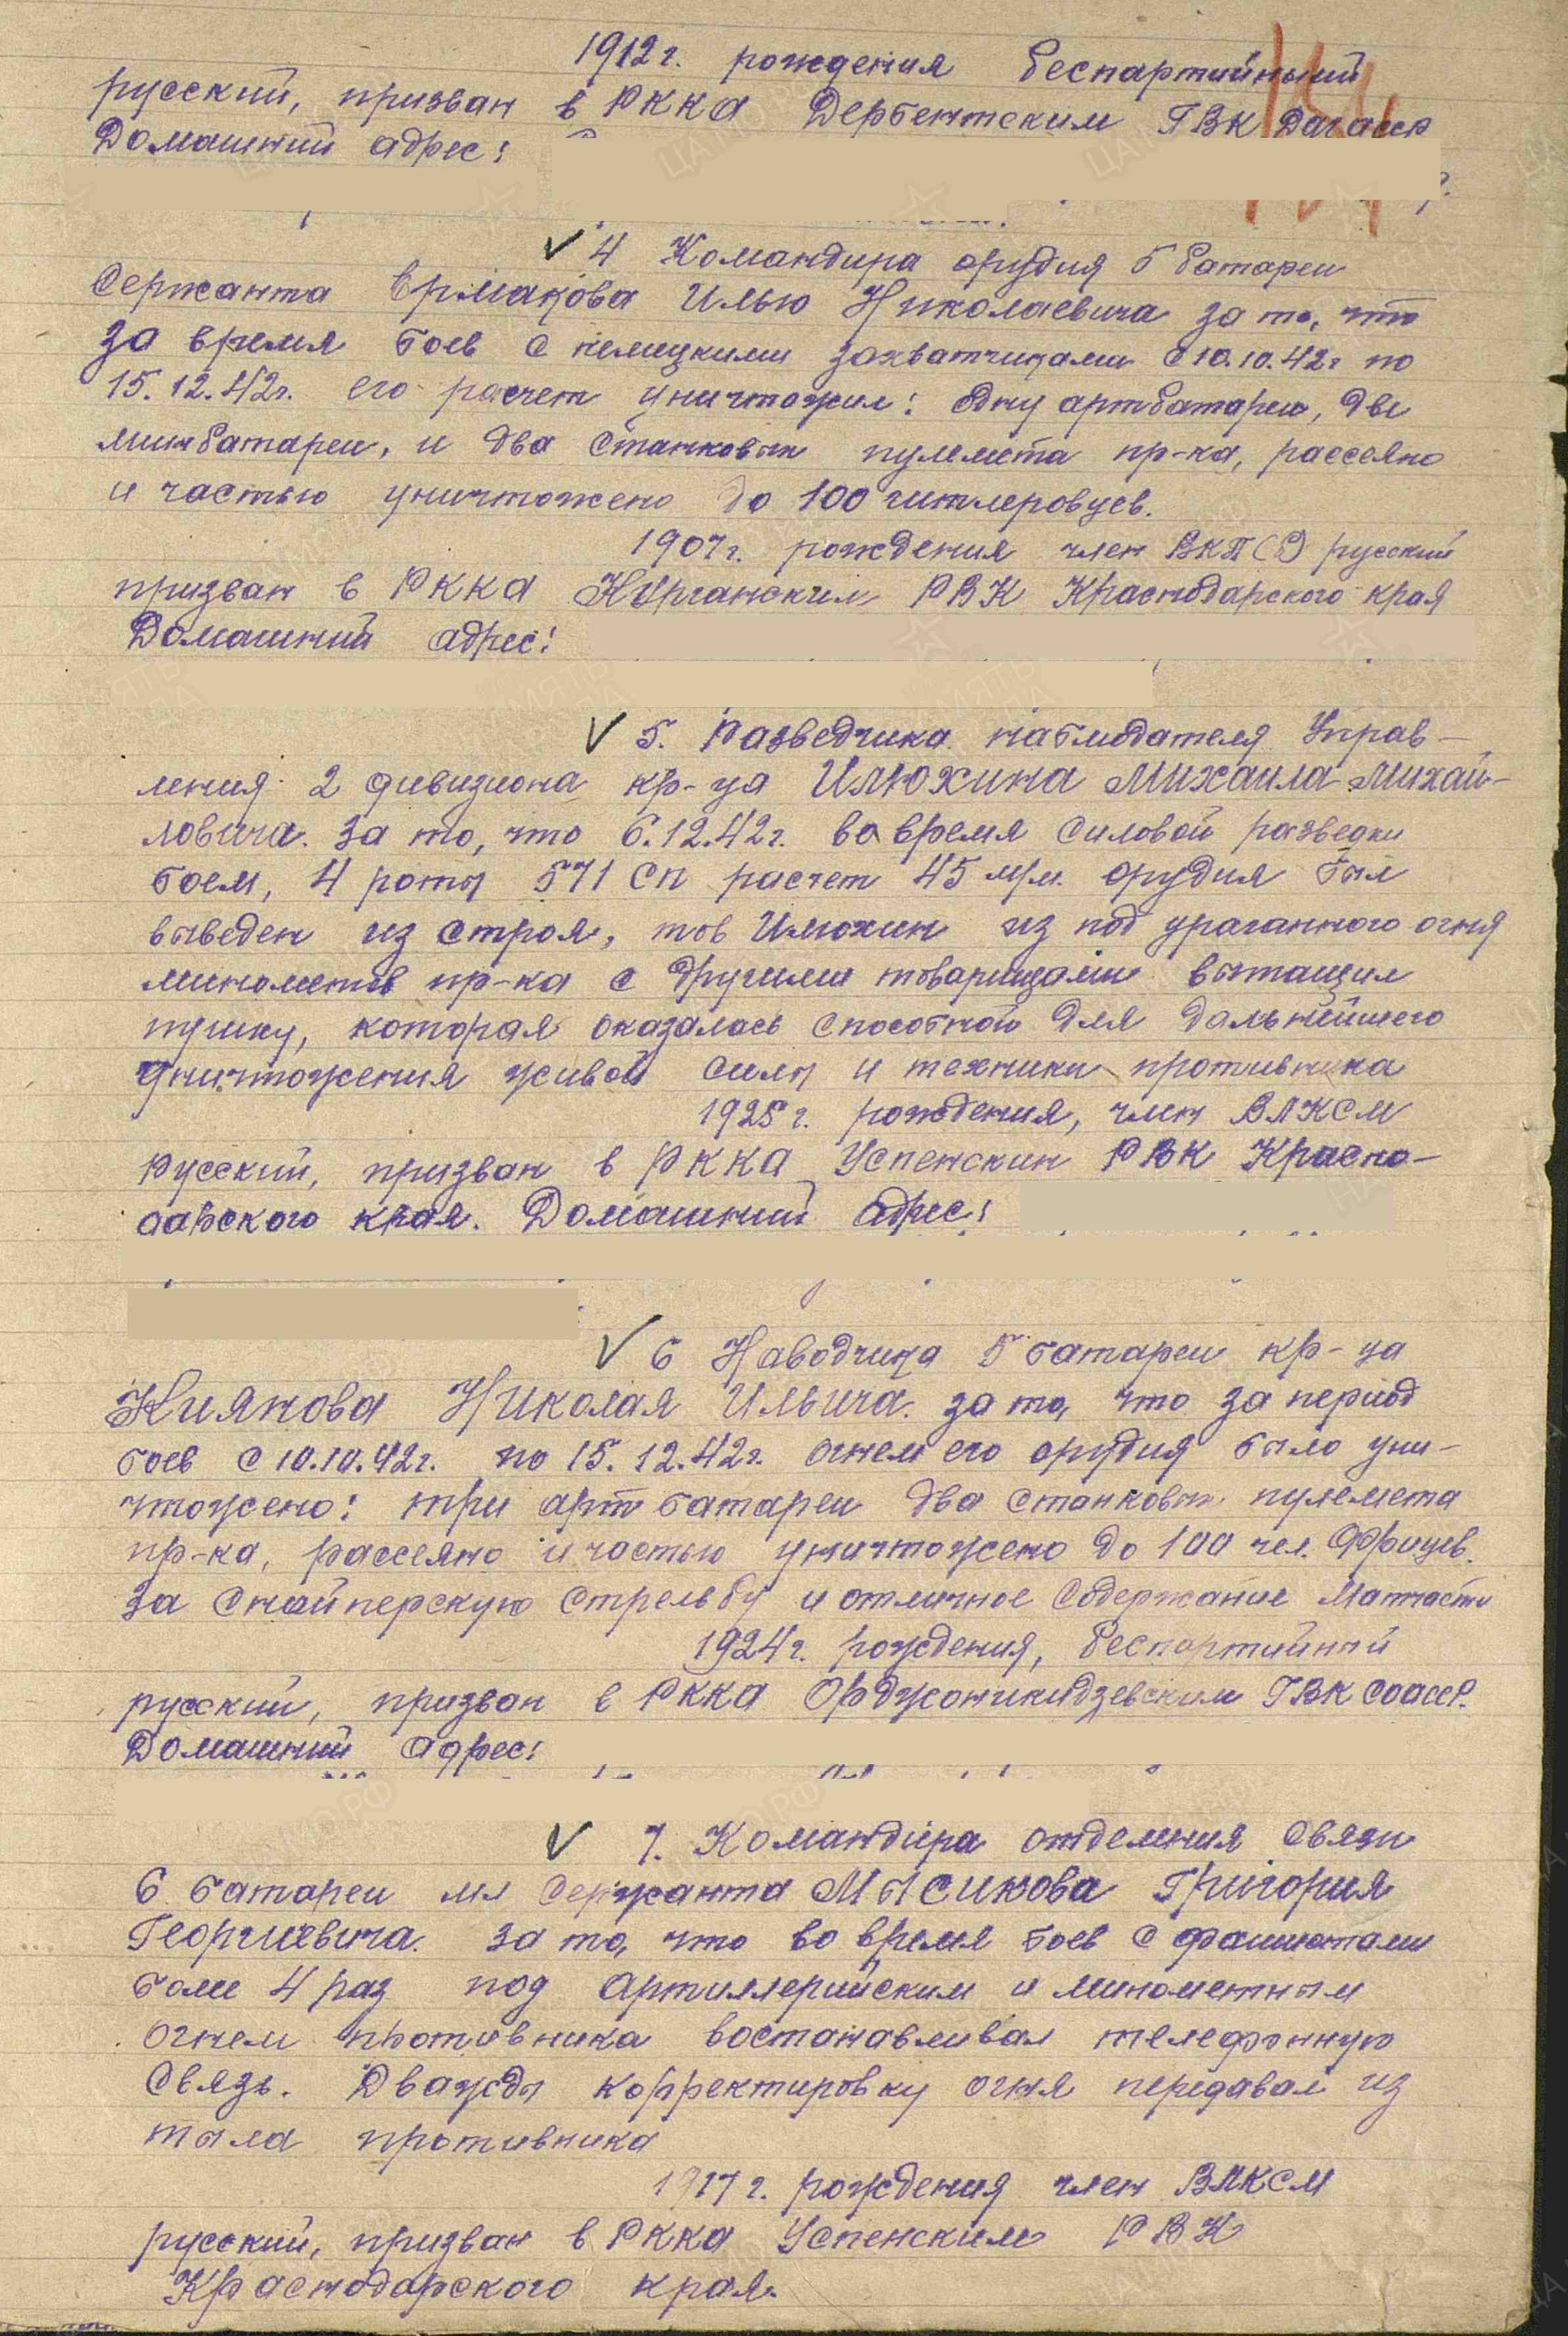 1912 г. рождения беспартийный
русский, призван в РККА Дербентским ГВК ДагАССР
Домашний адрес:
4 Командира орудия 5 батареи
Сержанта Ермакова Илью Николаевича за то, что
за время боев с немецкими захватчиками с 10.10.42г по
15.12.42г. его расчет уничтожил: одну артбатарею, две
минбатареи, и два станковых пулемета пр-ка, рассеяно
и частью уничтожено до 100 гитлеровцев.
1907г. рождения член ВКП(б) русский
призван в РККА Курганским РВК Краснодарского края
Домашний адрес:
5. Разведчика наблюдателя Управ-
ления 2 дивизиона кр-ца Илюхина Михаила Михай-
ловича. за то, что 6.12.42г. во время силовой разведки
боем, 4 роты 571 СП расчет 45 м/м. орудия был
выведен из строя, тов Илюхин из под ураганного огня
минометов пр-ка с другими товарищами вытащил
пушку, которая оказалась способной для дальнейшего
уничтожения живой силы и техники противника
1925 г. рождения, член ВЛКСМ
русский, призван в РККА Успенским РВК Красно-
дарского края. Домашний адрес:
6 Наводчика 5 батареи кр-ца
Киянова Николая Ильича. за то, что за период
боев с 10.10.42г. по 15.12.42г. огнем его орудия было уни-
чтожено: три арт батареи два станковых пулемета
пр-ка, рассеяно и частью уничтожено до 100 чел. Фрицев.
за снайперскую стрельбу и отличное содержание матчасти
1924г. рождения, беспартийный
русский, призван в РККА Орджоникидзевским ГВК СОАССР.
Домашний адрес:
7. Командира отделения связи
6 батареи мл сержанта Мысикова Григория
Георгиевича. за то, что во время боев с фашистами
боле 4 раз под артиллерийским и минометным
огнем противника востанавливал телефонную
связь. Дважды корректировку огня передавал из
тыла противника
1917 г. рождения член ВЛКСМ
русский, призван в РККА Успенским РВК
Краснодарского края.